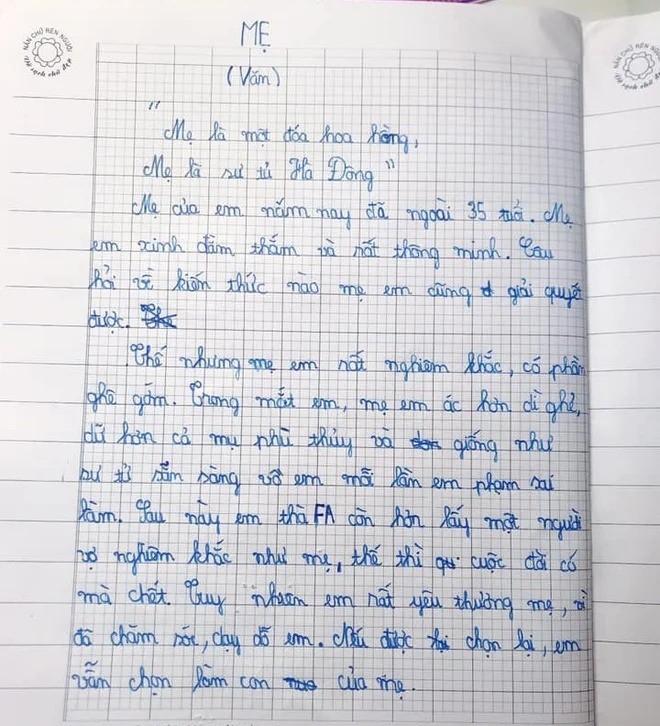 NẮN CHỮ RÈN NGƯỜI
Vở sạch chữ đẹp
NẮN CHỮ RÈN NGƯỜI
Vở sạch chữ đẹp
MẸ
(Văn)
"
Mẹ là một đóa hoa hồng,
Mẹ là sư tử Hà Đông"
Mẹ của em năm nay đã ngoài 35 tuổi. Mẹ
em xinh đằm thắm và rất thông minh. Câu
hỏi về kiến thức nào mẹ em cũng giải quyết
được.
Thế nhưng mẹ em rất nghiêm khắc, có phần
ghê gớm. Trong mắt em, mẹ em ác hơn dì ghẻ,
dữ hơn cả mụ phù thủy và giống như
sư tử sẵn sàng vồ em mỗi lần em phạm sai
lầm. Sau này em thà FA còn hơn lấy một người
vợ nghiêm khắc như mẹ, thế thì cuộc đời có
mà chết. Tuy nhiên em rất yêu thương mẹ, vì
đã chăm sóc, dạy dỗ em. Nếu được chọn lại, em
vẫn chọn làm con của mẹ.